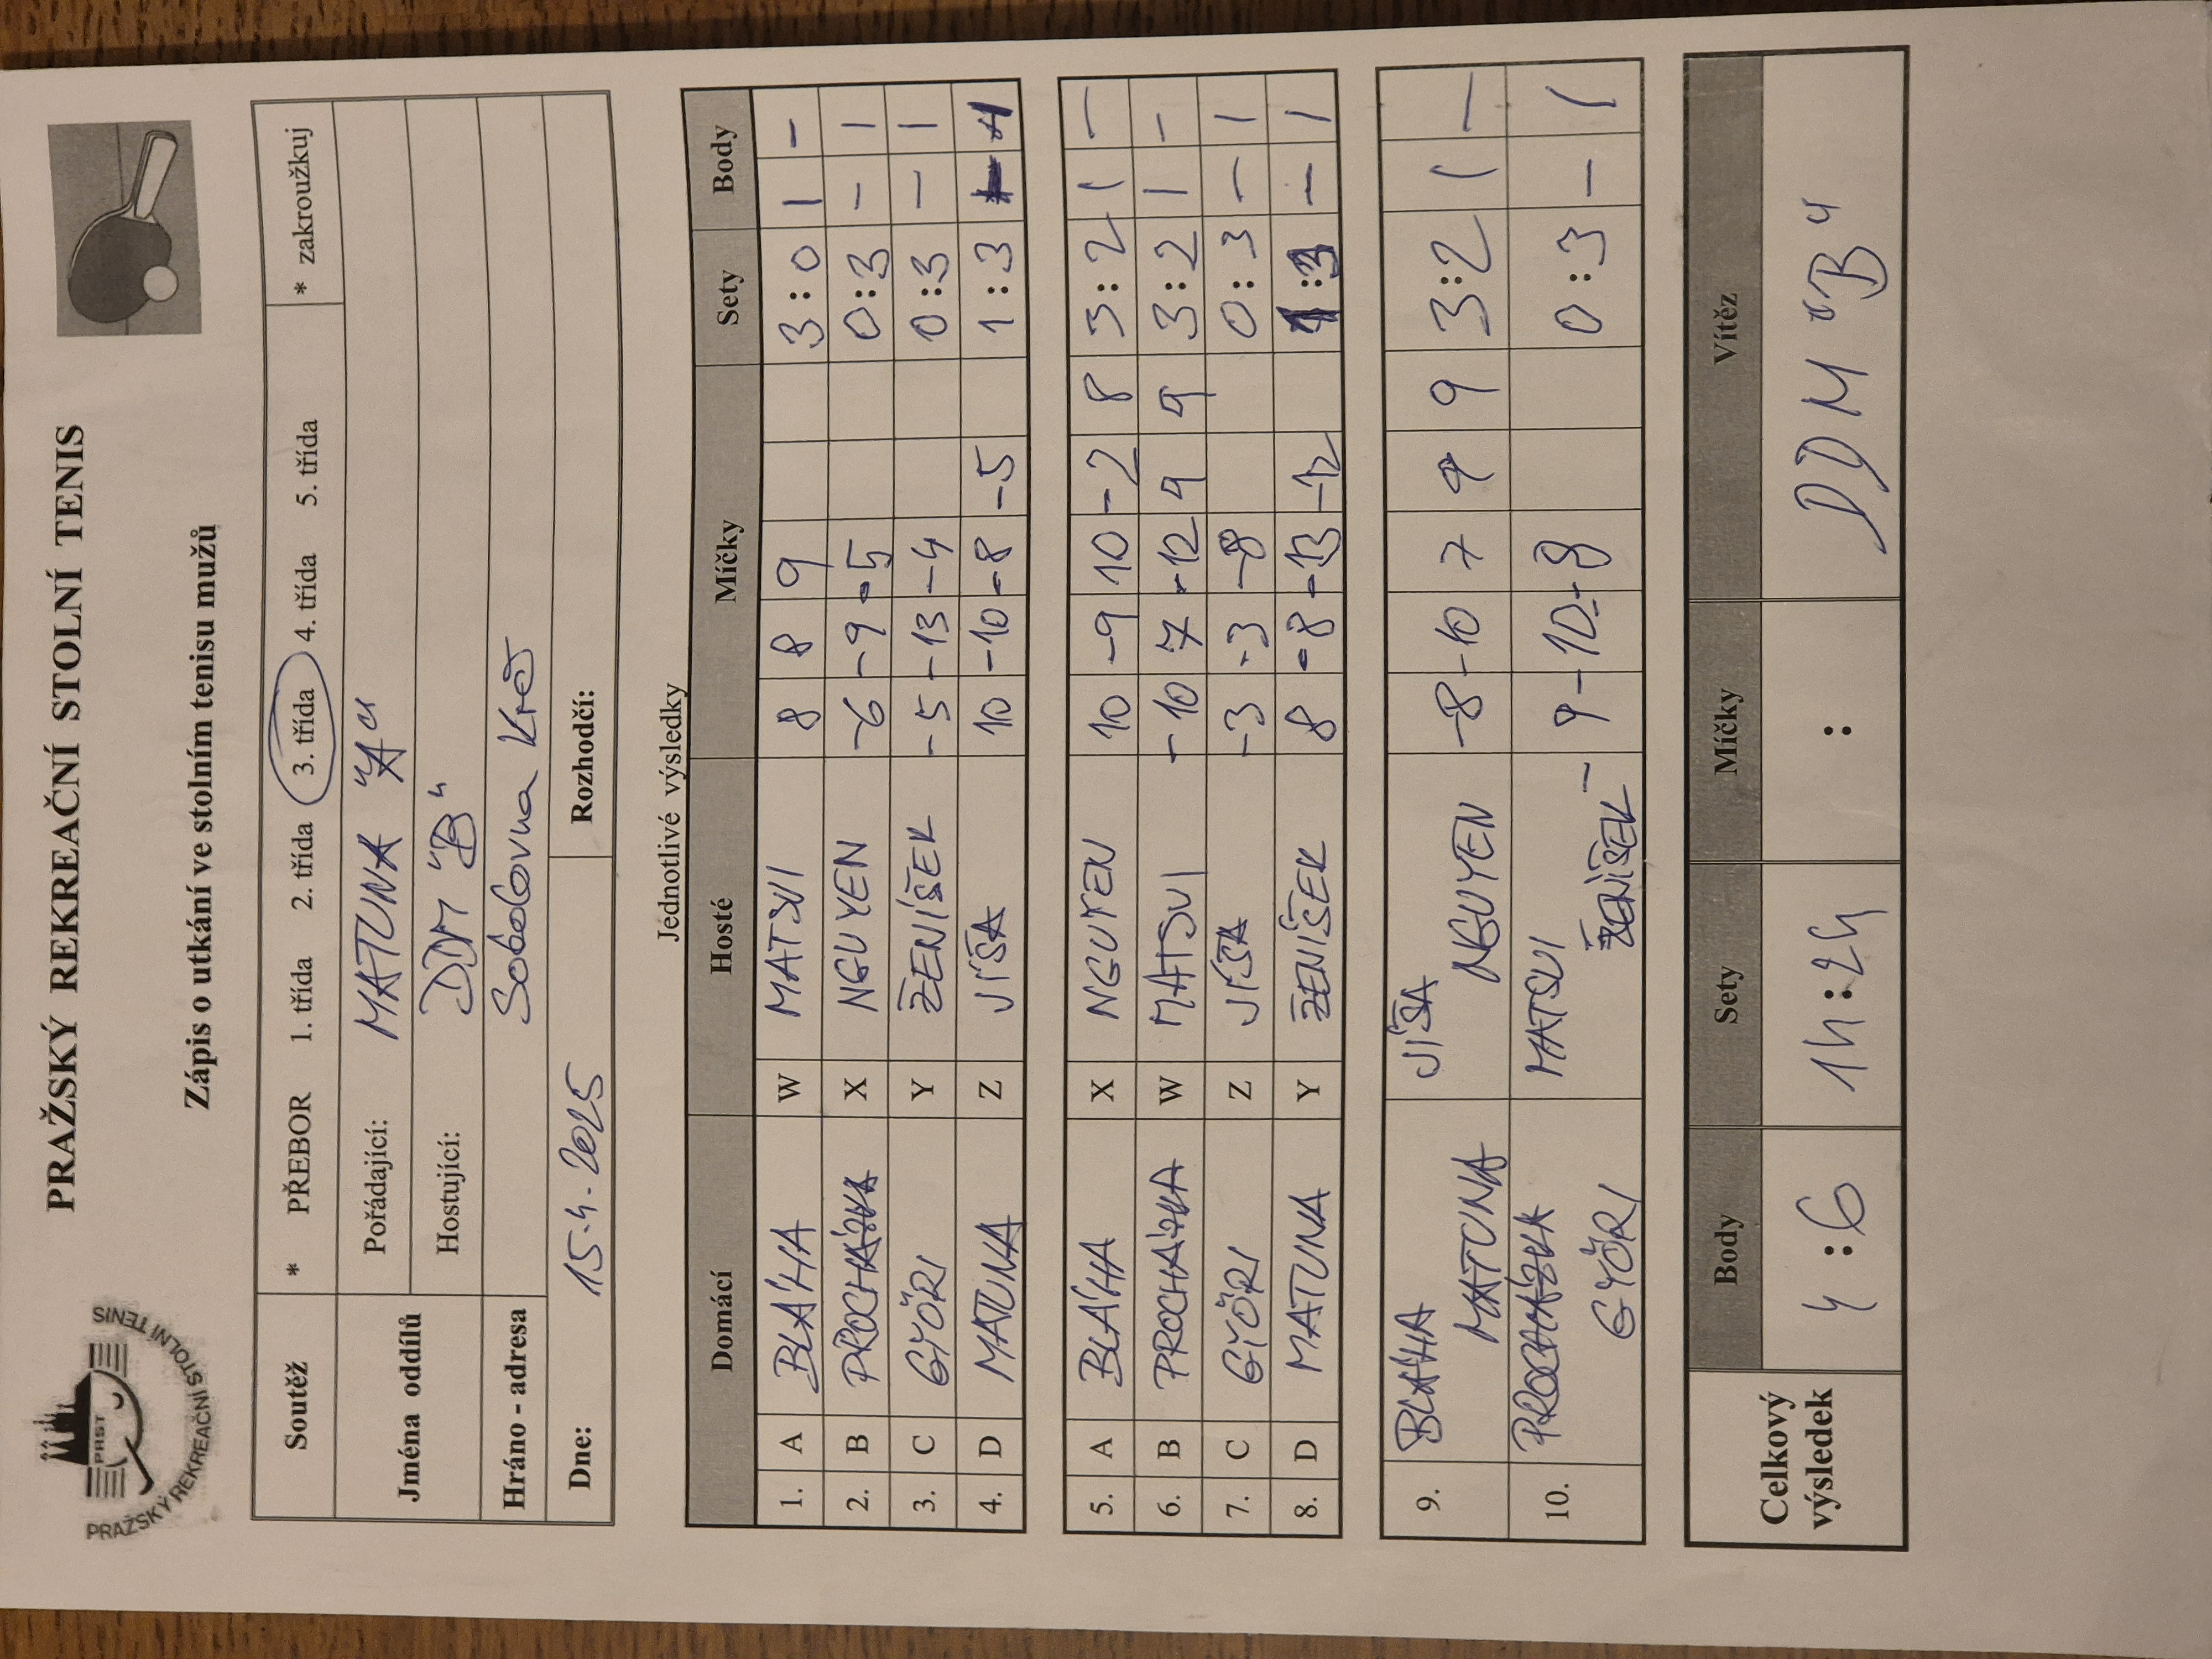 PRAŽSKÝ REKREAČNÍ STOLNÍ TENIS
PRST
PRAŽSKÝ REKREAČNÍ STOLNÍ TENIS
Zápis o utkání ve stolním tenisu mužů
Soutěž * PŘEBOR 1. třída 2. třída 3. třída 4. třída 5. třída * zakroužkuj
Jména oddílů Pořádající: MATUNA "A"
Hostující: DDM "B"
Hráno - adresa Sokolovna Krč
Dne: 15.4.2025 Rozhodčí:
Jednotlivé výsledky
Domácí Hosté Míčky Sety Body
1. A BLÁHA W MATSUI 8 8 9 3:0 1 -
2. B PROCHÁZKA X NGUYEN -6 -9 -5 0:3 - 1
3. C GYÖRI Y ŽENÍŠEK -5 -13 -4 0:3 - 1
4. D MATUNA Z JÍŠA 10 -10 -8 -5 1:3 - 1
5. A BLÁHA X NGUYEN 10 -9 10 -2 8 3:2 1 -
6. B PROCHÁZKA W MATSUI -10 7 -12 9 9 3:2 1 -
7. C GYÖRI Z JÍŠA -3 -3 -8 0:3 - 1
8. D MATUNA Y ŽENÍŠEK 8 -8 -13 -12 1:3 - 1
9. BLÁHA JÍŠA
MATUNA NGUYEN -8 -10 7 9 9 3:2 1 -
10. PROCHÁZKA MATSUI
GYÖRI ŽENÍŠEK -9 -10 -8 0:3 - 1
Celkový výsledek Body Sety Míčky Vítěz
4:6 14:24 : DDM "B"